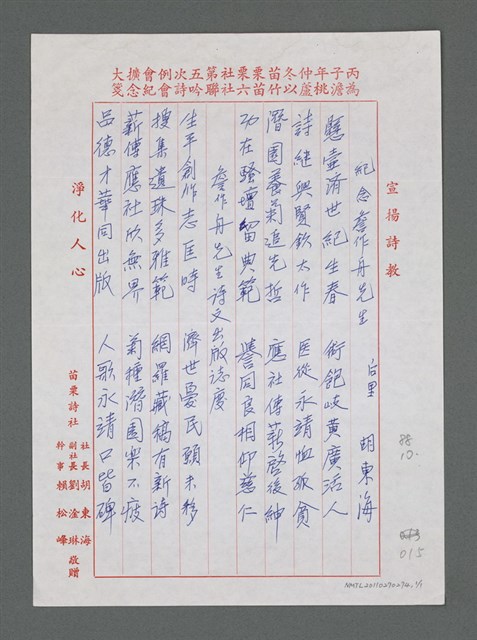 丙子年仲冬苗栗栗社第五次例會擴大
為澹桃蘆以竹苗六社聯吟詩會紀念箋
宣揚詩教
紀念詹作舟先生
后里 胡東海
懸壺濟世紀生春 術飽岐黃廣活人
詩繼興賢欽太作 医從永靖恤孤貧
潛園養菊追先哲 應社傳薪啓後紳
功在騷壇留典範 譽同良相仰慈仁
詹作舟先生詩文出版誌慶
生平創作志匡時 濟世憂民願未移
搜集遺珠多雅範 網羅藏稿有新詩
薪傳應社欣無界 菊種潛園樂不疲
品德才華同出版 人歌永靖口皆碑
淨化人心
苗栗詩社
社長胡東海
副社長劉淦琳
幹事賴松峰
敬贈
88.
10.
015
NMTL20110270274,1/1